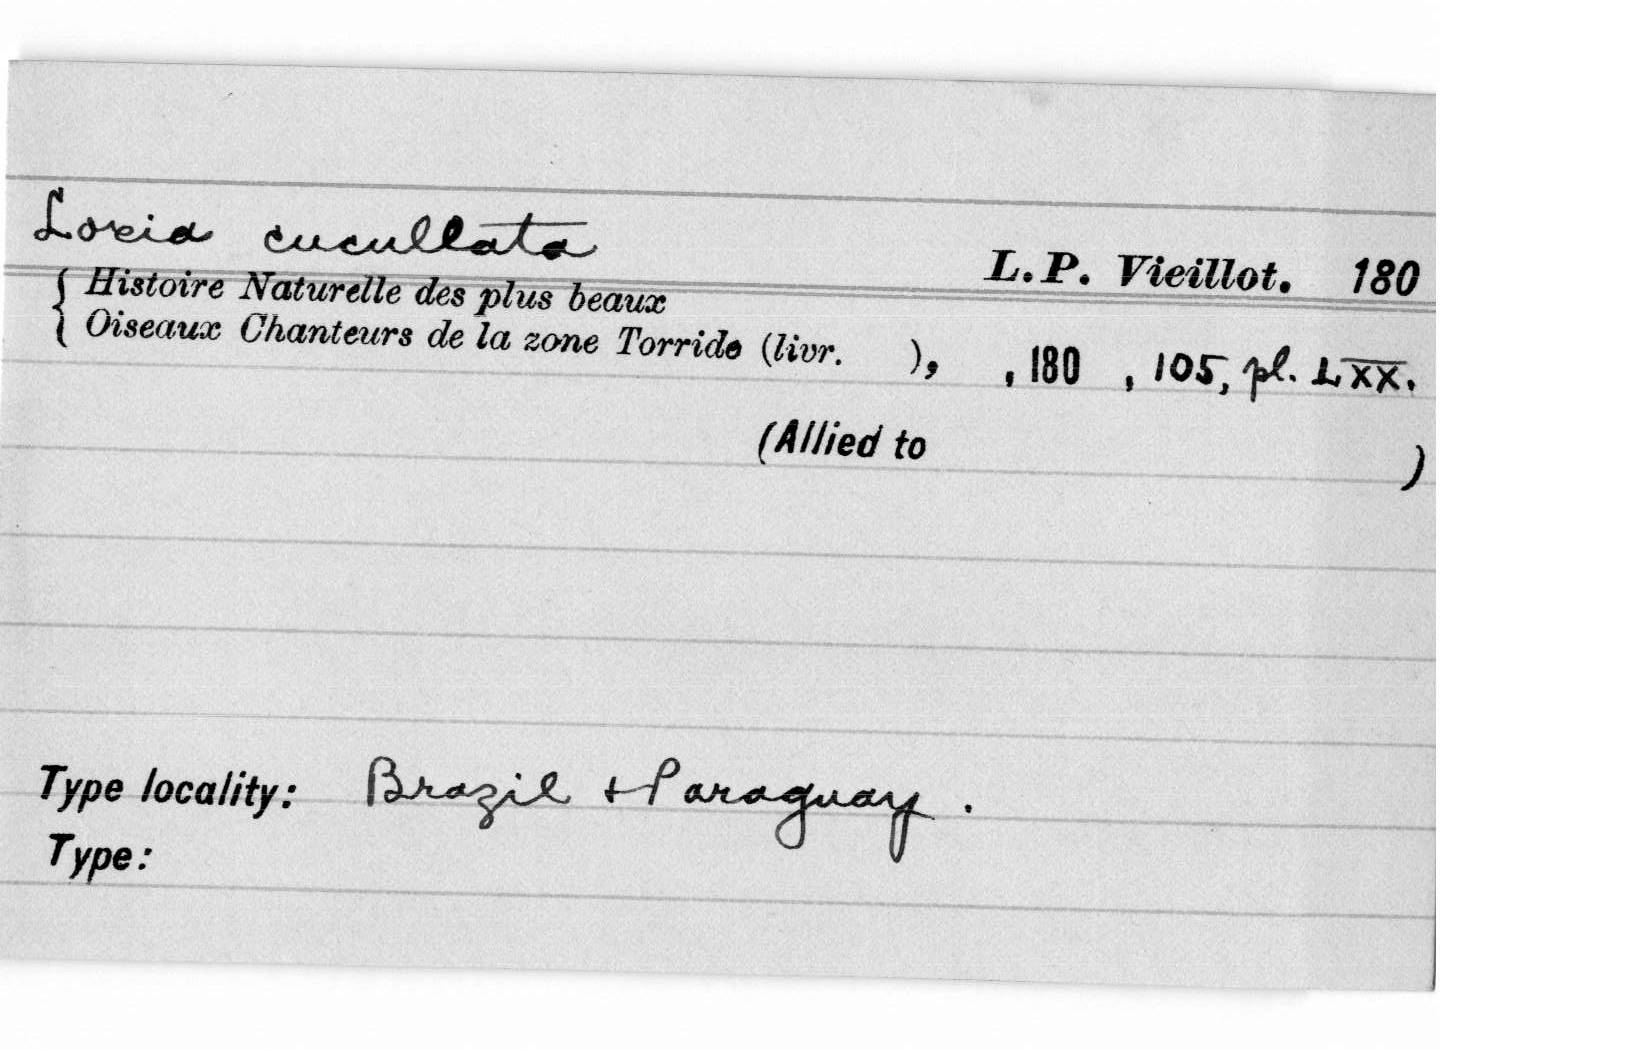 Loxia cucullata
L. P. Vieillot. 180
{ Histoire Naturelle des plus beaux
{ Oiseaux Chanteurs de la zone Torride (livr. ), , 180 , 105, pl. LXX.
(Allied to )
Type locality: Brazil + Paraguay .
Type: